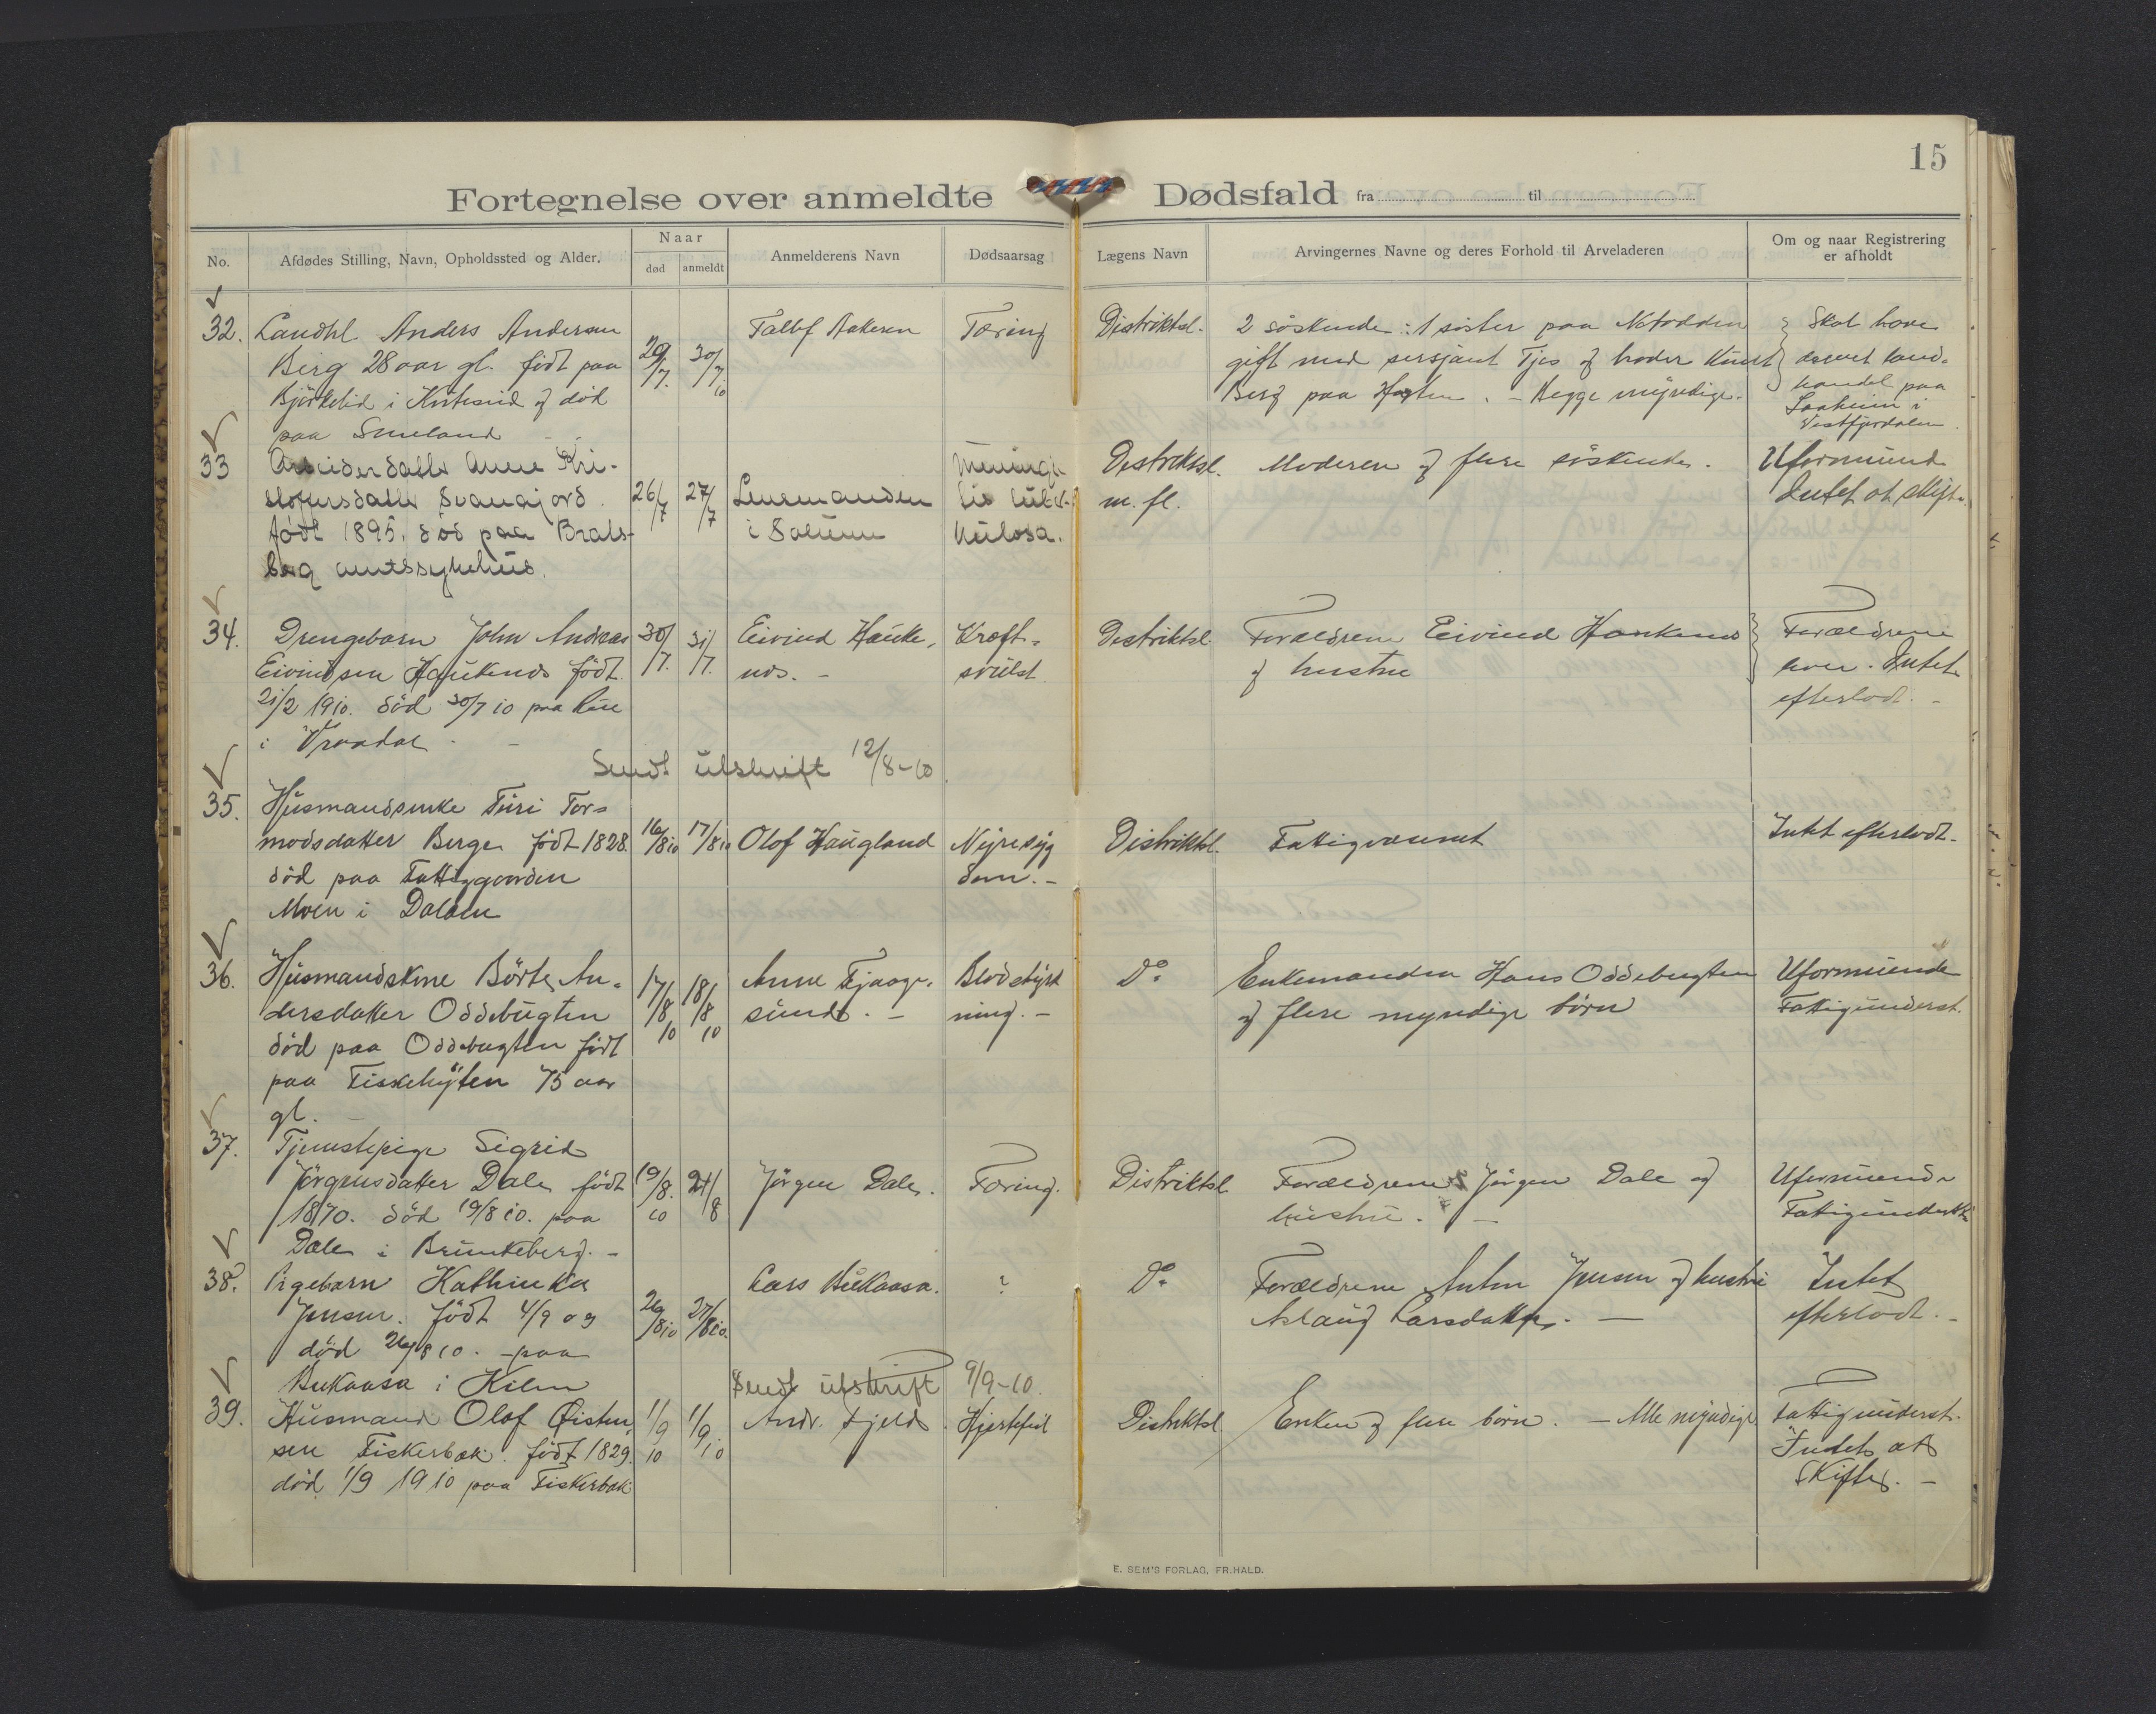 15
Fortegnelse over anmeldte Dødsfald fra til
No.
Afdødes Stilling, Navn, Opholdssted og Alder.
Naar
død
anmeldt
Anmelderens Navn
Dødsaarsag
Lægens Navn
Arvingernes Navne og deres Forhold til Arveladeren
Om og naar Registrering
er afholdt
32.
Landhl. Anders Andersen
Berg 28 aar gl. født paa
i og død
paa
29/7.
30/7 10
Tæring
Distriktsl.
2 söskende: 1 söster paa Notodden
gift med sersjant og broder Knut
Berg paa . – Begge myndige.
Skal have
drevet land-
handel paa
Saaheim i
Vestfjorddalen
33
Arbeiderdatter Anne Kri-
stoffersdatter Svanajord.
født 1895. død paa Brats-
berg amtssykehus.
26/7
27/7
Lensmanden
i Solum
Meningi-
tis tuber-
kulosa.
Distriktsl.
m. fl.
Moderen og flere söskende.
Uformuend
Intet at skifte.
34.
Drengebarn John Andreas
Eivindsen Haukenes født
21/2 1910. død 30/7 10 paa
i Vraadal
30/7.
31/7.
Eivind Hauke-
nes. –
Kræft-
svulst
Distriktsl.
Forældrene Eivind Haukenes
og hustru
Forældrene
lever. Intet
efterladt. –
Sendt utskrift 12/8–10.
35.
Husmandsenke Turi Tor-
modsdatter Berge født 1828.
død paa Fattiggaarden
Moen i Dalen
16/8 10
17/8 10
Olof Haugland
Nyresyg
dom. –
Distriktsl.
Fattigvæsenet
Intet efterladt. –
36.
Husmandskone Börte An-
dersdatter Oddebugten
død paa Oddebugten født
paa Fiskehytten 75 aar
gl.
17/8 10
18/8 10
Anne Tjaage-
sund. –
Blodstyrt
ning. –
Do
Enkemanden Hans Oddebugten
og flere myndige børn
Uformuende
Fattigunderst.
37.
Tjenestepige Sigrid
Jörgensdatter Dale født
1870. død 19/8 10. paa
Dale i Brunkeberg. –
19/8. 10
21/8
Jörgen Dale.
Tæring.
Distriktsl.
Forældrene Jörgen Dale og
hustru. –
Uformuende
Fattigunderst.
38.
Pigebarn Kathinka
Jensen. Født 4/9 09
død 26/8 10. – paa
Bukaasa i Kilen
26/8 10
27/8 10.
Lars Bukaasa.
?
Do
Forældrene Anton Jensen og hustru
Aslaug Larsdatter. –
Intet
efterladt. –
Sendt utskrift 9/9–10.
39.
Husmand Olof Øisten-
sen Fiskerbak. født 1829.
død 1/9 1910 paa Fiskerbak
1/9 10
1/9 10
Andr. Fjeld.
Hjertefeil
Distriktsl.
Enken og flere børn. – Alle myndige
Fattigunderst.
Intet at
skifte. –
E. SEM'S FORLAG, FR.HALD.